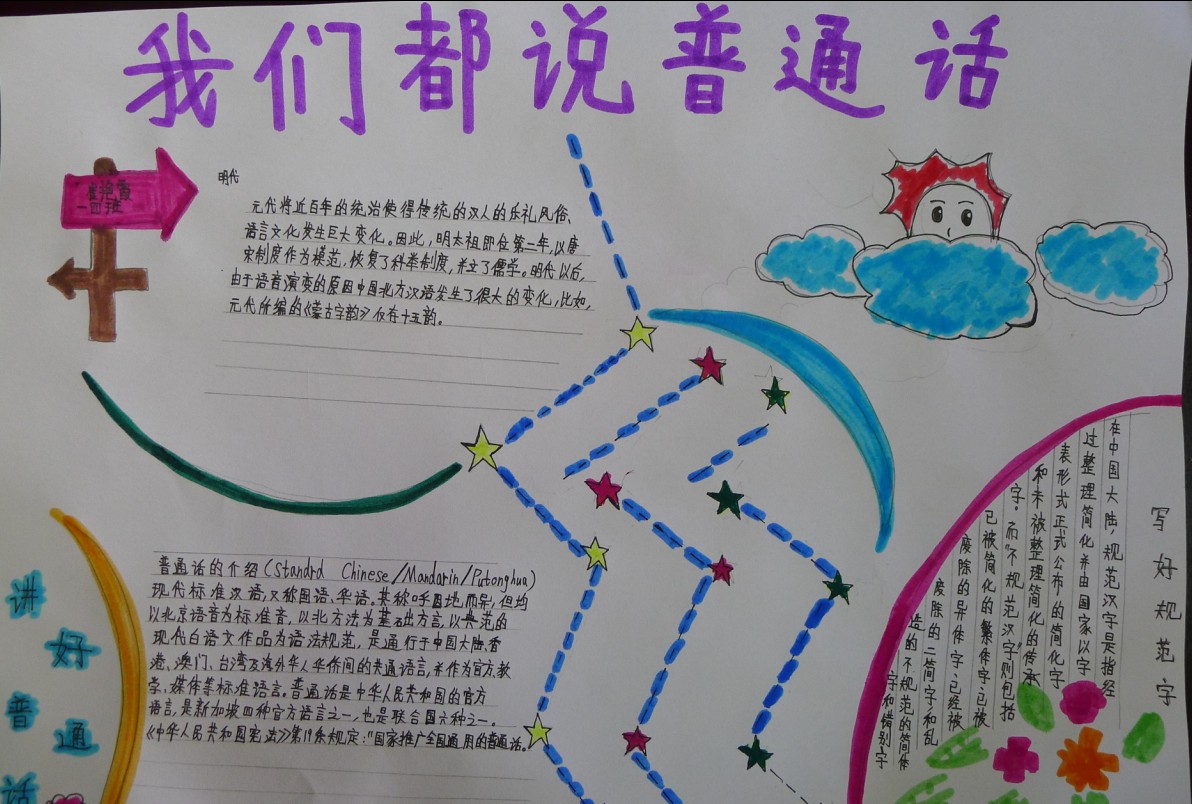 我们都说普通话
一四班
明代
元代将近百年的统治使得传统的汉人的乐礼风俗、
语言文化发生巨大变化。因此,明太祖即位第一年,以唐
宋制度作为模范,恢复了科举制度,并立了儒学。明代以后,
由于语音演变的原因中国北方汉语发生了很大的变化,比如,
元代所编的《蒙古字韵》仅存十五韵。
普通话的介绍(Standrd Chinese/Mandarin/Putonghua)
现代标准汉语,又称国语、华语。其称呼因地而异,但均
以北京语音为标准音,以北方法为基础方言,以典范的
现代白语文作品为语法规范,是通行于中国大陆、香
港、澳门、台湾及海外华人华侨间的共通语言,并作为官方、教
学、媒体等标准语言。普通话是中华人民共和国的官方
语言,是新加坡四种官方语言之一,也是联合国六种之一。
《中华人民共和国宪法》第19条规定:"国家推广全国通用的普通话。
讲好普通话
写好规范字
在中国大陆,规范汉字是指经
过整理简化并由国家以字
表形式正式公布的简化字
和未被整理简化的传承
字。而"不规范汉字"则包括
已被简化的繁体字、已被
废除的异体字、已经被
废除的二简字和乱
造的不规范的简体
字和错别字